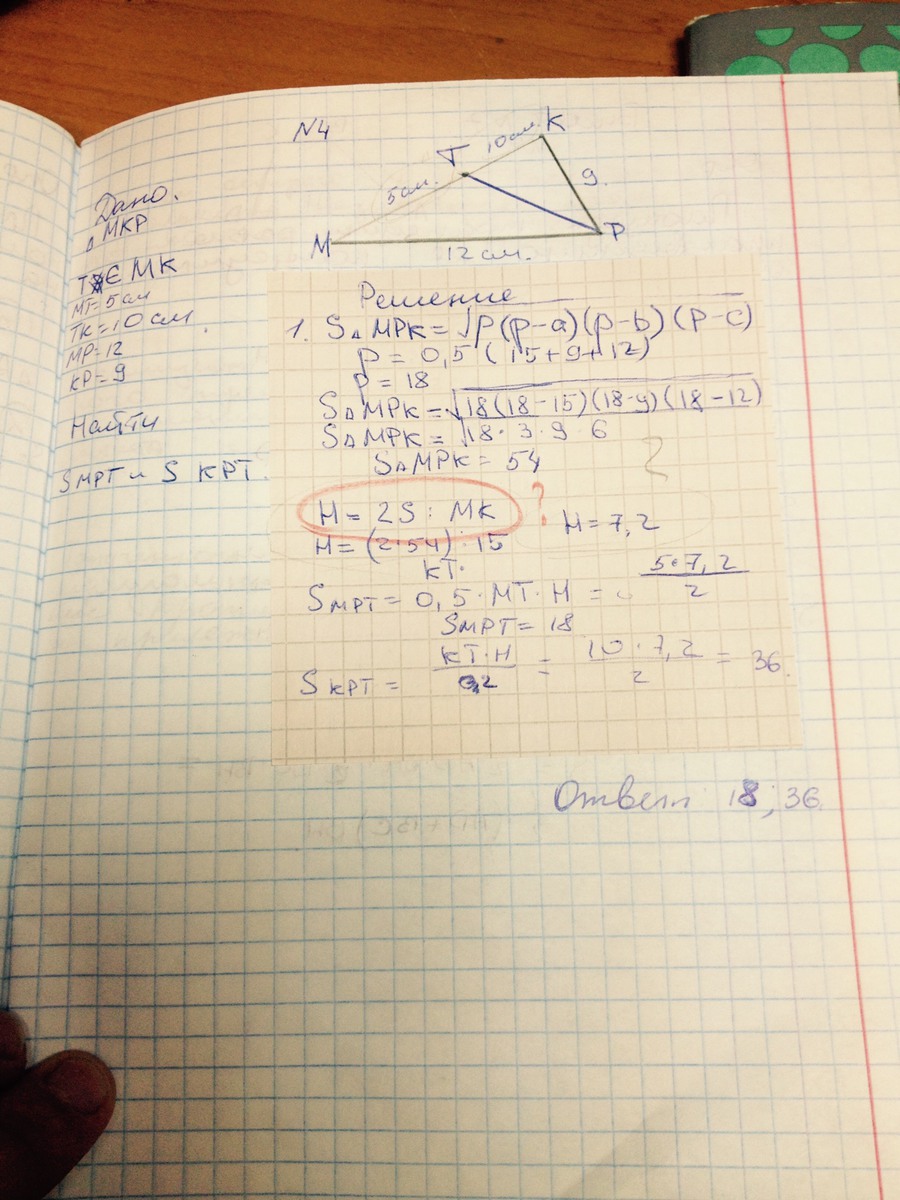 N4
K
10см.
T
5см.
9.
M
P
12 см.
Дано.
△ MKP
T∈ MK
MT=5см
TK=10 см.
MP=12
KP=9
Найти
SMPT и S KPT.
Решение
1. S△MPK= √p(p-a)(p-b)(p-c)
p = 0,5 (15+9+12)
p = 18
S△MPK=√18(18-15)(18-9)(18-12)
S△MPK= √18·3·9·6
S△MPK= 54
H= 2S : MK ?
H=(2·54):15
H=7,2
KT·
SMPT= 0,5·MT·H = 5·7,2/2
SMPT=18
SKPT= KT·H/2 = 10·7,2/2 = 36.
Ответ 18; 36.